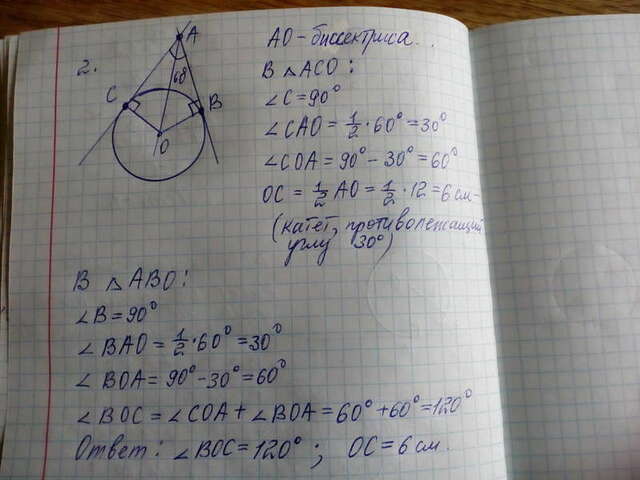 2.
A
60°
C
B
O
AO - биссектриса.
В △ACO:
∠C = 90°
∠CAO = 1/2 · 60° = 30°
∠COA = 90° - 30° = 60°
OC = 1/2 AO = 1/2 · 12 = 6 см -
(катет, противолежащий
углу 30°)
В △ABO:
∠B = 90°
∠BAO = 1/2 · 60° = 30°
∠BOA = 90° - 30° = 60°
∠BOC = ∠COA + ∠BOA = 60° + 60° = 120°
Ответ: ∠BOC = 120°; OC = 6 см.